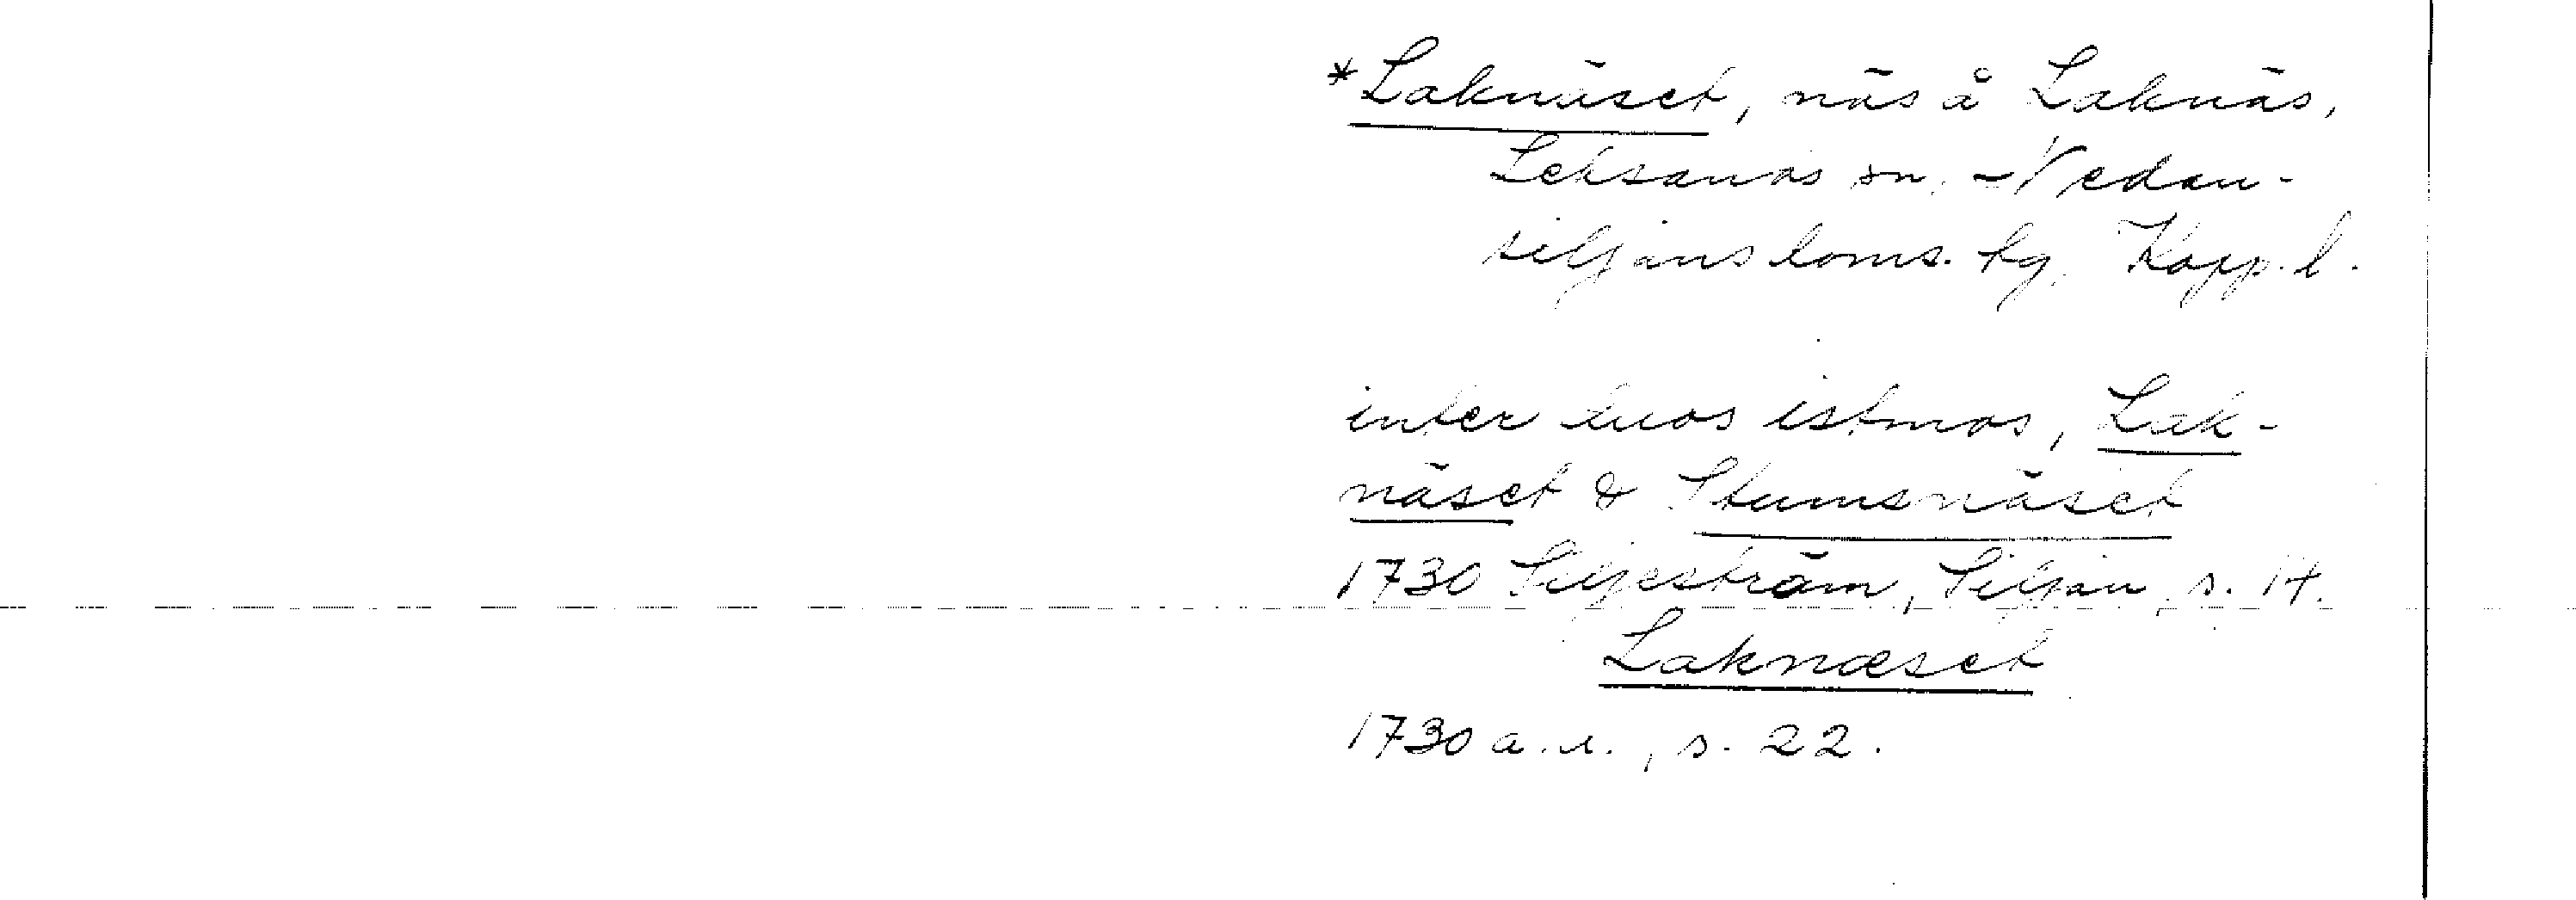 *Laknäset, näs å Laknäs,
Leksands sn, Nedan-
siljans doms. tg, Kopp. l.
inter duos istmos, Lak-
näset & Stumsnäset
1730 Siljeström, Siljan, s. 14.
Laknæset
1730 a.a., s. 22.